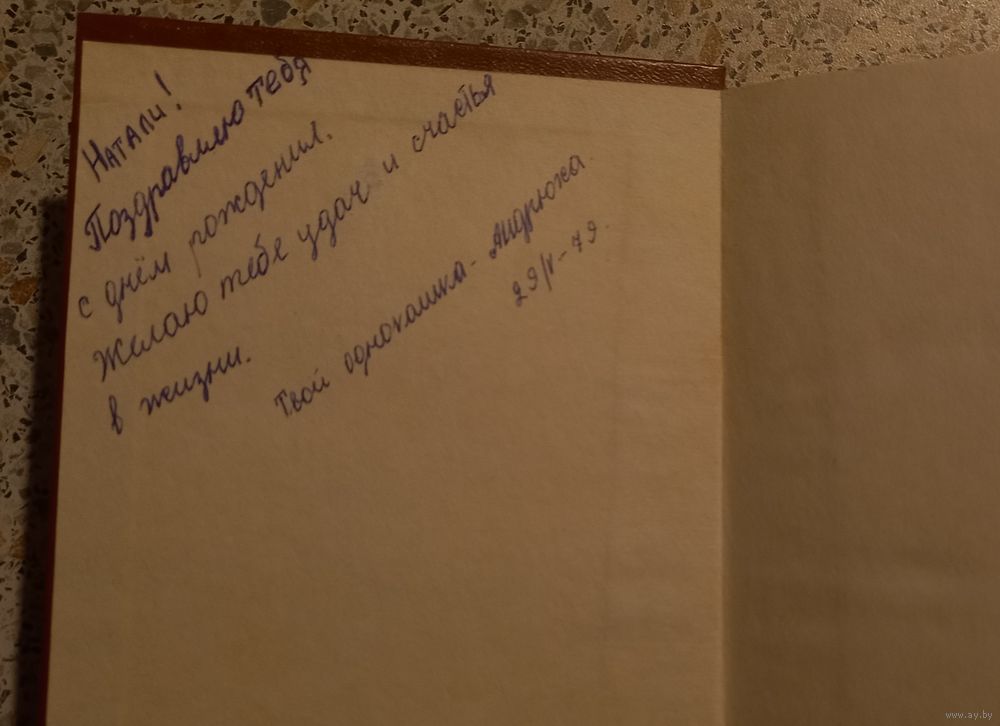 Натали!
Поздравляю тебя
с днём рождения.
Желаю тебе удач и счастья
в жизни.
Твой однокашка - Андрюха.
29/V-79.
www.ay.by